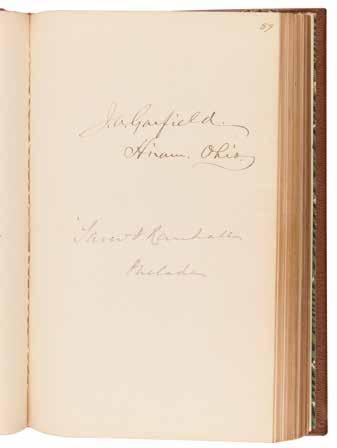 59
J.A. Garfield.
Hiram. Ohio
Saml J Randall
Philada